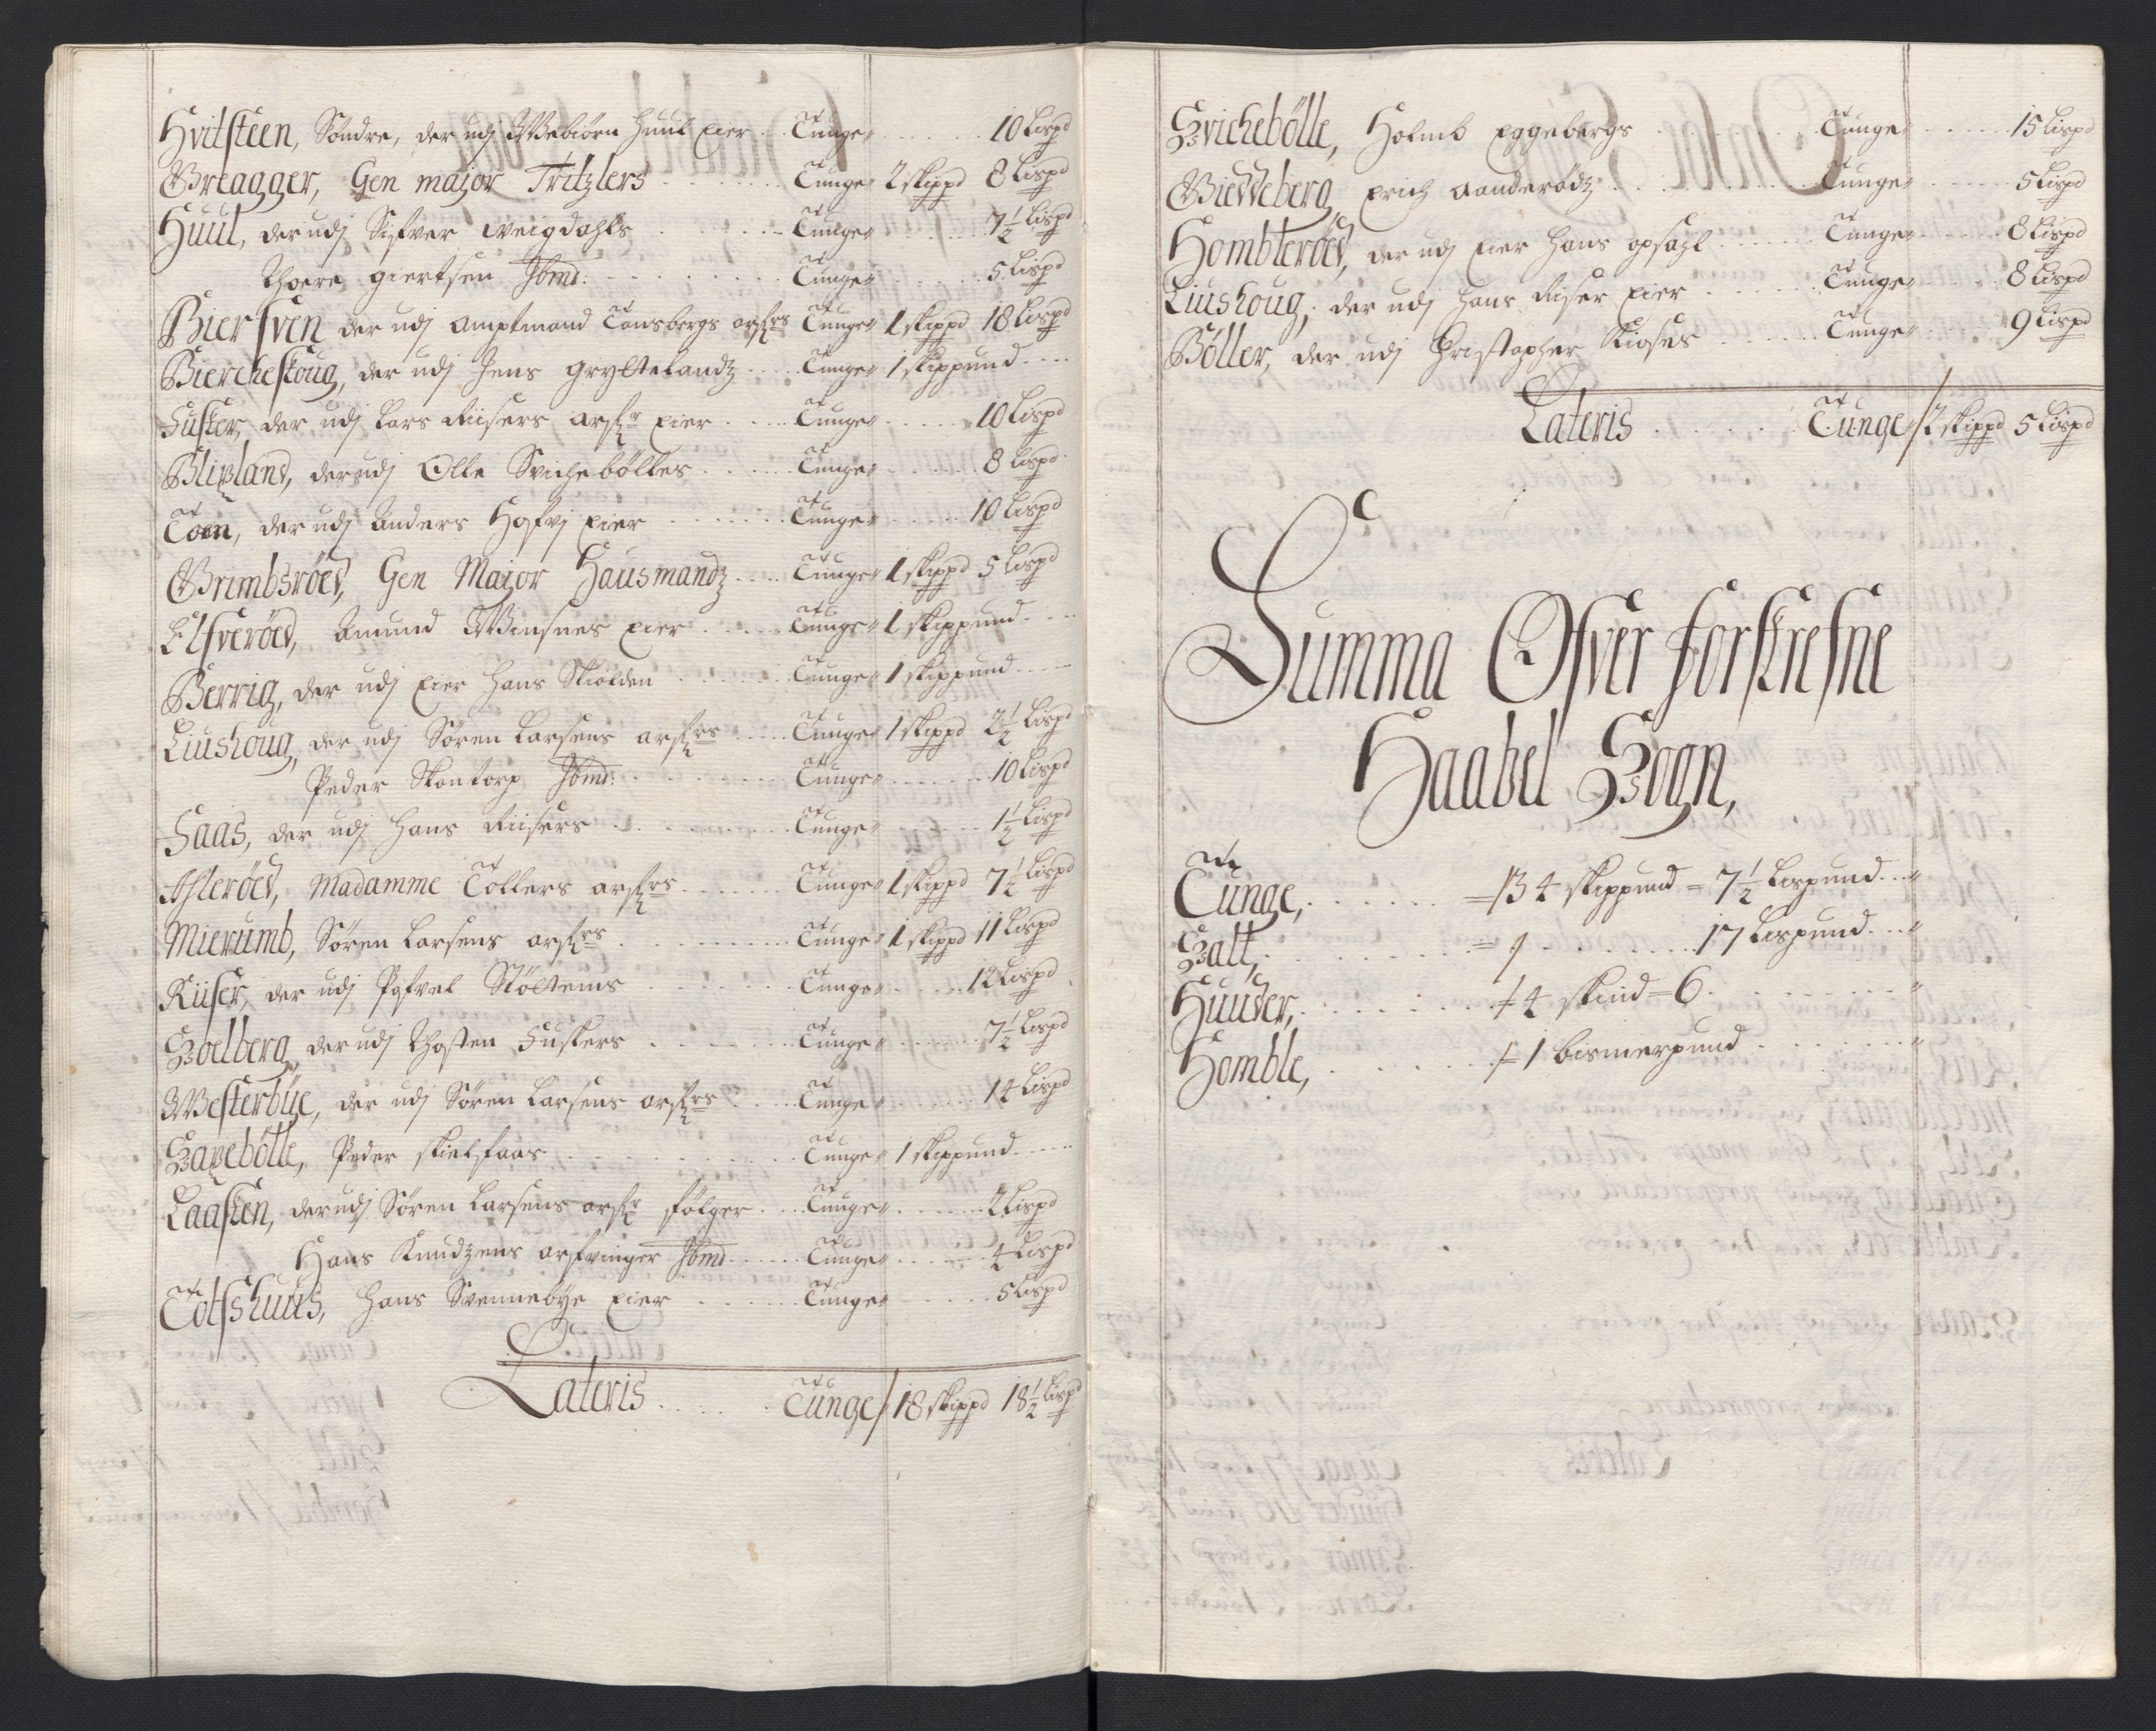 Hvitsteen, Söndre, der udj Webiörn Huul Eier . . Tunge . . . . 10 Lispd
Greagger, Gen major Tritzlers . . . . Tunge 2 skippd 8 Lispd
Huul, der udj Sifver Weigdahls . . . . Tunge . . . . 7½ Lispd
Thore giertsen Ibmd: . . . . Tunge . . . . 5 Lispd
Biersven der udj Amptmand Tonsbergs arfrs Tunge 1 skippd 18 Lispd
Biercheskoug, der udj Jens gryltelandz . . . . Tunge 1 skippund . . . .
Fusker, der udj Lars Riisers arfr Eier . . . . Tunge . . . . 10 Lispd
Blixland, der udj Olle Svichebölles . . . . Tunge . . . . 8 Lispd
Toen, der udj Anders Hofvj Eier . . . . Tunge . . . . 10 Lispd
Grimbsröed, Gen Major Hausmandz . . . . Tunge 1 skippd 5 Lispd
Elfveröed, Amund Winsnes Eier . . . . Tunge 1 skippund . . . .
Berrig, der udj Eier Hans Skiolden . . . . Tunge 1 skippund . . . .
Liushoug, der udj Sören Larsens arfrs . . . . Tunge 1 skippd 2½ Lispd
Peder Skontorp Ibmd: . . . . Tunge . . . . 10 Lispd
Faas, der udj Hans Riisers . . . . Tunge . . . . 1½ Lispd
Asleröed, Madamme Tollers arfrs . . . . Tunge 1 skippd 7½ Lispd
Mierumb, Sören Larsens arfrs . . . . Tunge 1 skippd 11 Lispd
Riiser, der udj Pofvel Stöltens . . . . Tunge . . . . 12 Lispd
Soelberg, der udj Thosten Fuskers . . . . Tunge . . . . 7½ Lispd
Westerbÿe, der udj Sören Larsens arfrs . . . . Tunge . . . . 14 Lispd
Saxebölle, Peder skielfaas . . . . Tunge 1 skippund . . . .
Laasken, der udj Sören Larsens arfr fölger . . . . Tunge . . . . 2 Lispd
Hans Knudzens arfvinger Ibmd . . . . Tunge . . . . 4 Lispd
Totshuus, Hans Svennebÿe Eier . . . . Tunge . . . . 5 Lispd
Lateris . . . . Tunge / 18 skippd 18½ Lispd
Svichebölle, Holmb Eggebergs . . . . Tunge . . . . 15 Lispd
Gieddeberg Erich Aanderödz . . . . Tunge . . . . 5 Lispd
Hombleröed, der udj Eier Hans opsahl . . . . Tunge . . . . 8 Lispd
Liushoug, der udj Hans Riser Eier . . . . Tunge . . . . 8 Lispd
Böller, der udj Christopher Kioses . . . . Tunge . . . . 9 Lispd
Lateris . . . . Tunge / 2 skippd 5 Lispd
Summa Ofver forskrefne
Haabel Sogn,
Tunge, . . . . 134 skippund = 7½ Lispund . . .
Salt, . . . . 17 Lispund . . .
Huuder, . . . . 4 skind = 6 . . . .
Homble, . . . . 1 bismerpund . . . .